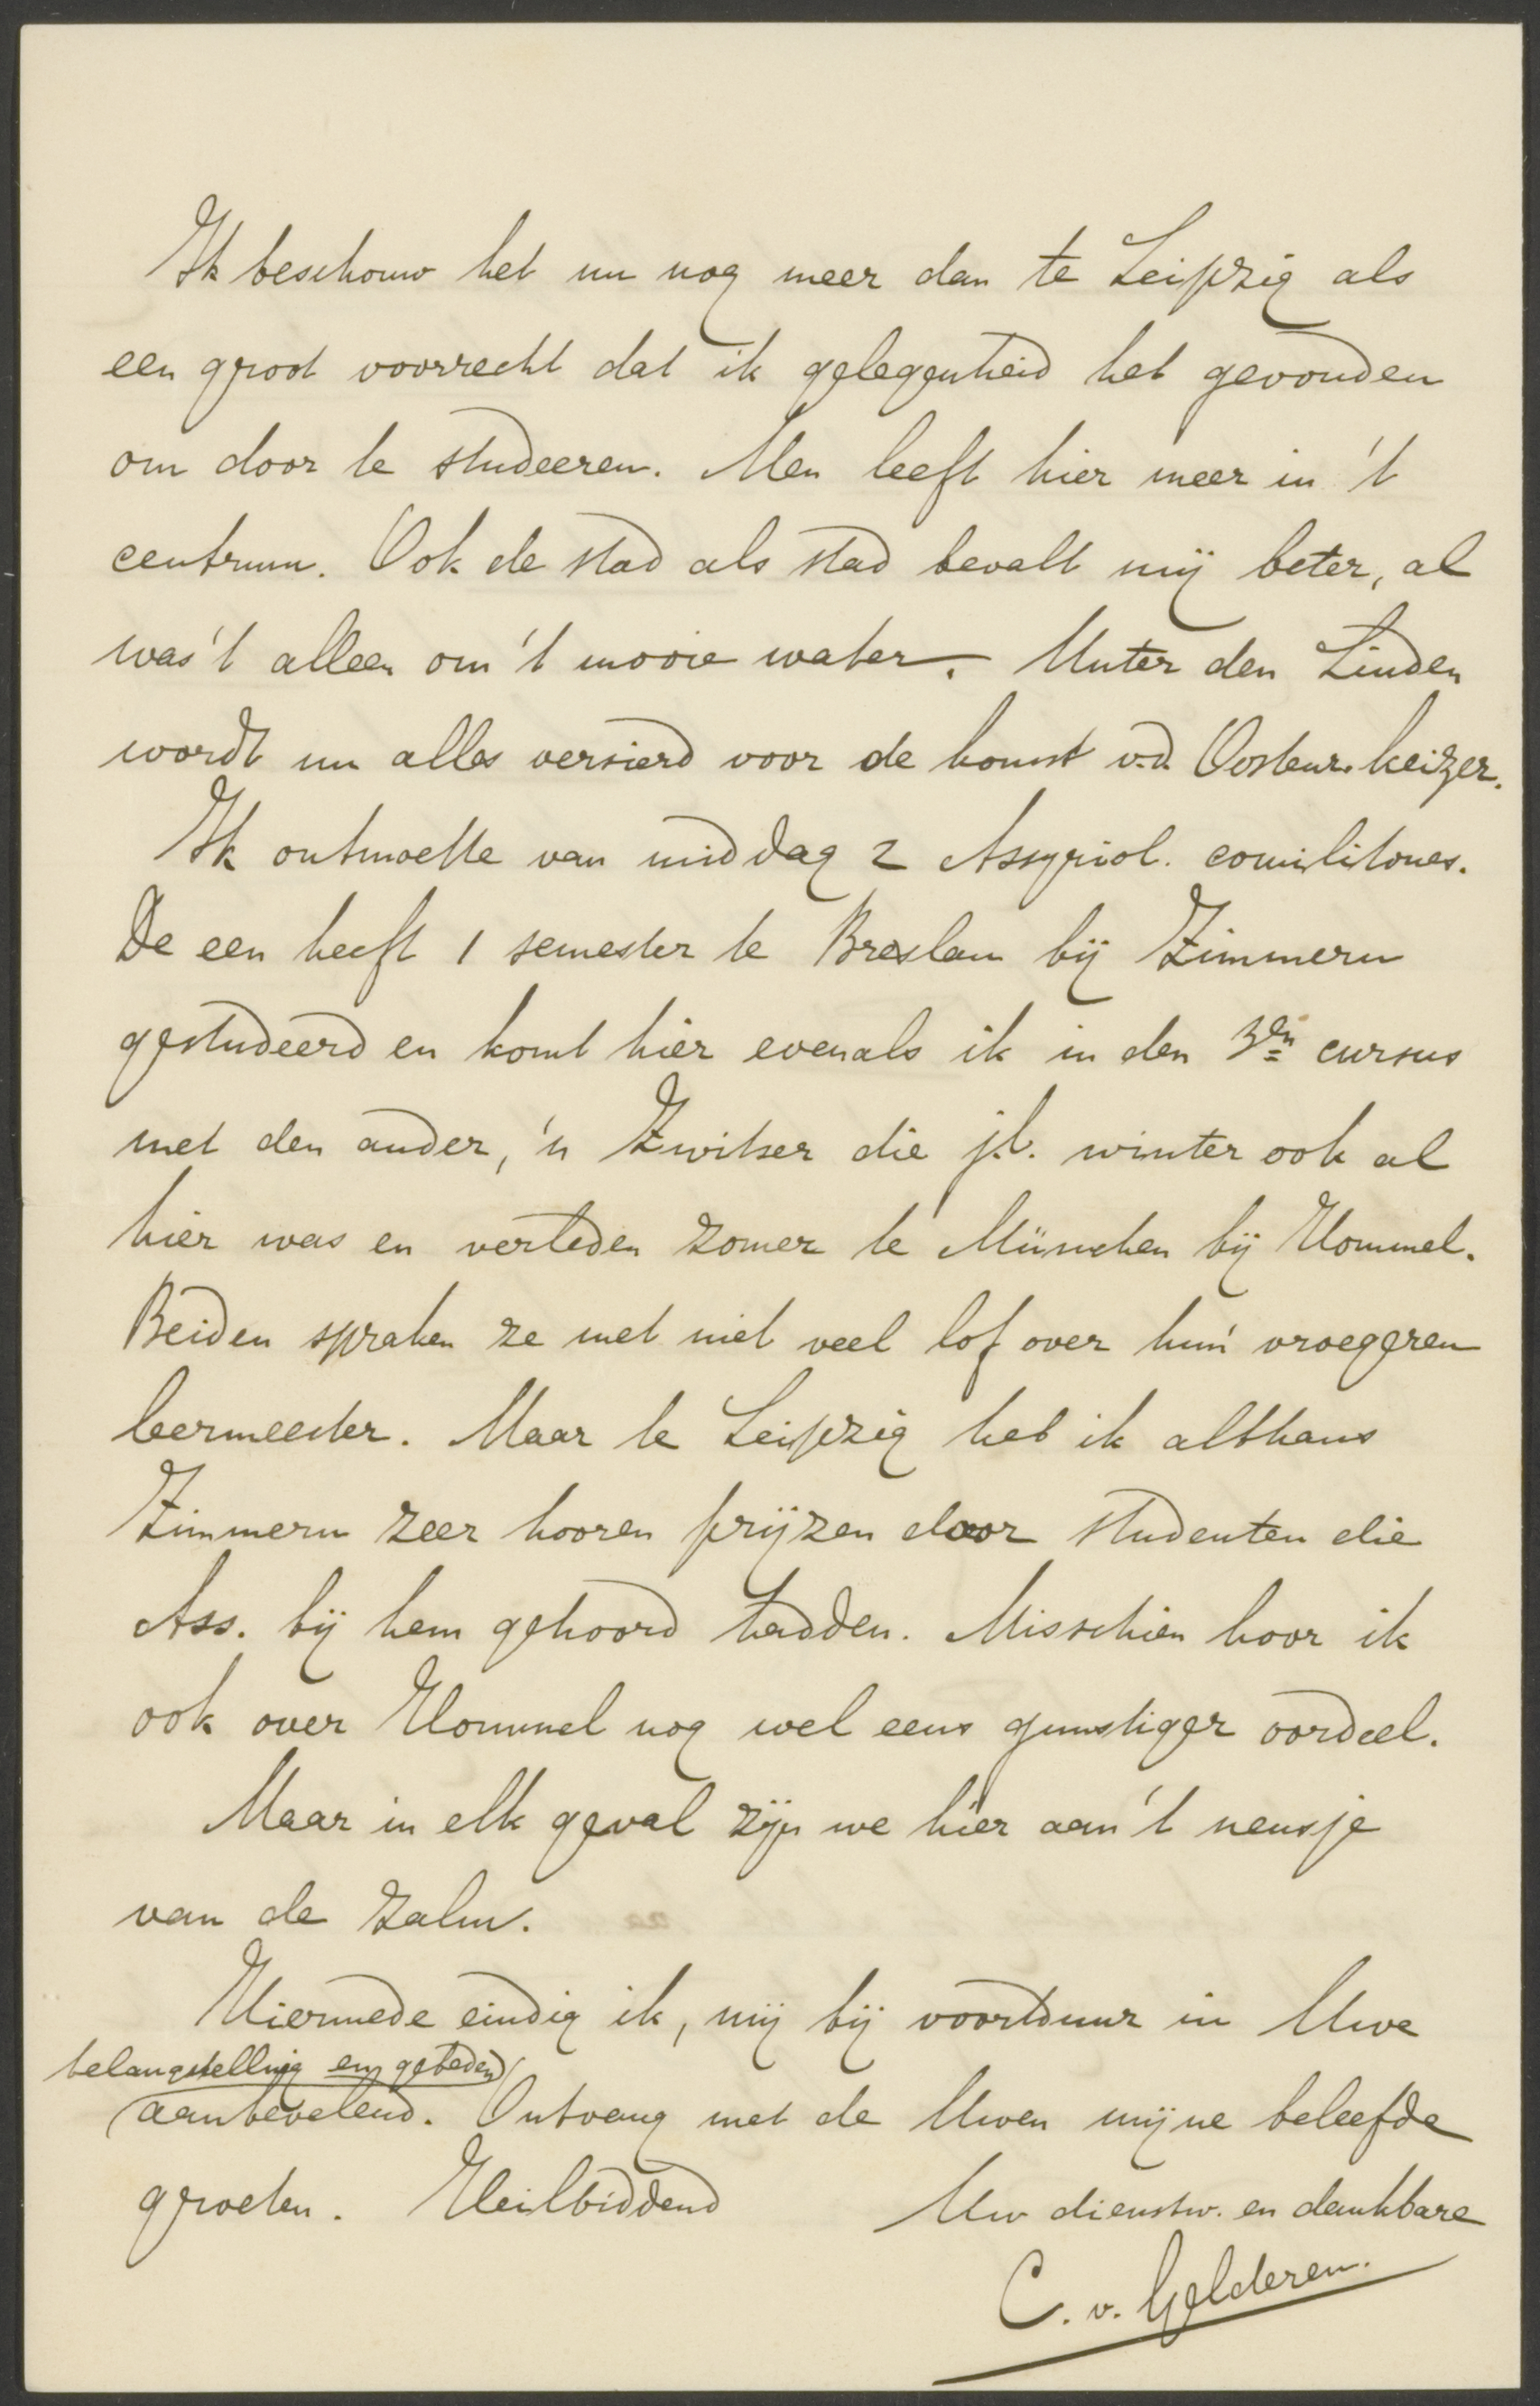 Ik beschouw het nu nog meer dan te Leipzig als
een groot voorrecht dat ik gelegenheid heb gevonden
om door te studeeren. Men leeft hier meer in 't
centrum. Ook de stad als stad bevalt mij beter, al
was 't alleen om 't mooie water. Unter den Linden
wordt nu alles versierd voor de komst v.d. Oostenr. keizer.
Ik ontmoette van middag 2 Assyriol. comilitones.
De een heeft 1 semester te Breslau bij Zimmern
gestudeerd en komt hier evenals ik in den 3en cursus
met den ander, 'n Zwitser die j.l. winter ook al
hier was en verleden zomer te München bij Hommel.
Beiden spraken ze met niet veel lof over hun vroegeren
leermeester. Maar te Leipzig heb ik althans
Zimmern zeer hooren prijzen door studenten die
Ass. bij hem gehoord hadden. Misschien hoor ik
ook over Hommel nog wel eens gunstiger oordeel.
Maar in elk geval zijn we hier aan 't neusje
van de zalm.
Hiermede eindig ik, mij bij voortduur in Uwe
belangstelling en gebeden
aanbevelend. Ontvang met de Uwen mijne beleefde
groeten. Heilbiddend
Uw dienstw. en dankbare
C. v. Gelderen.